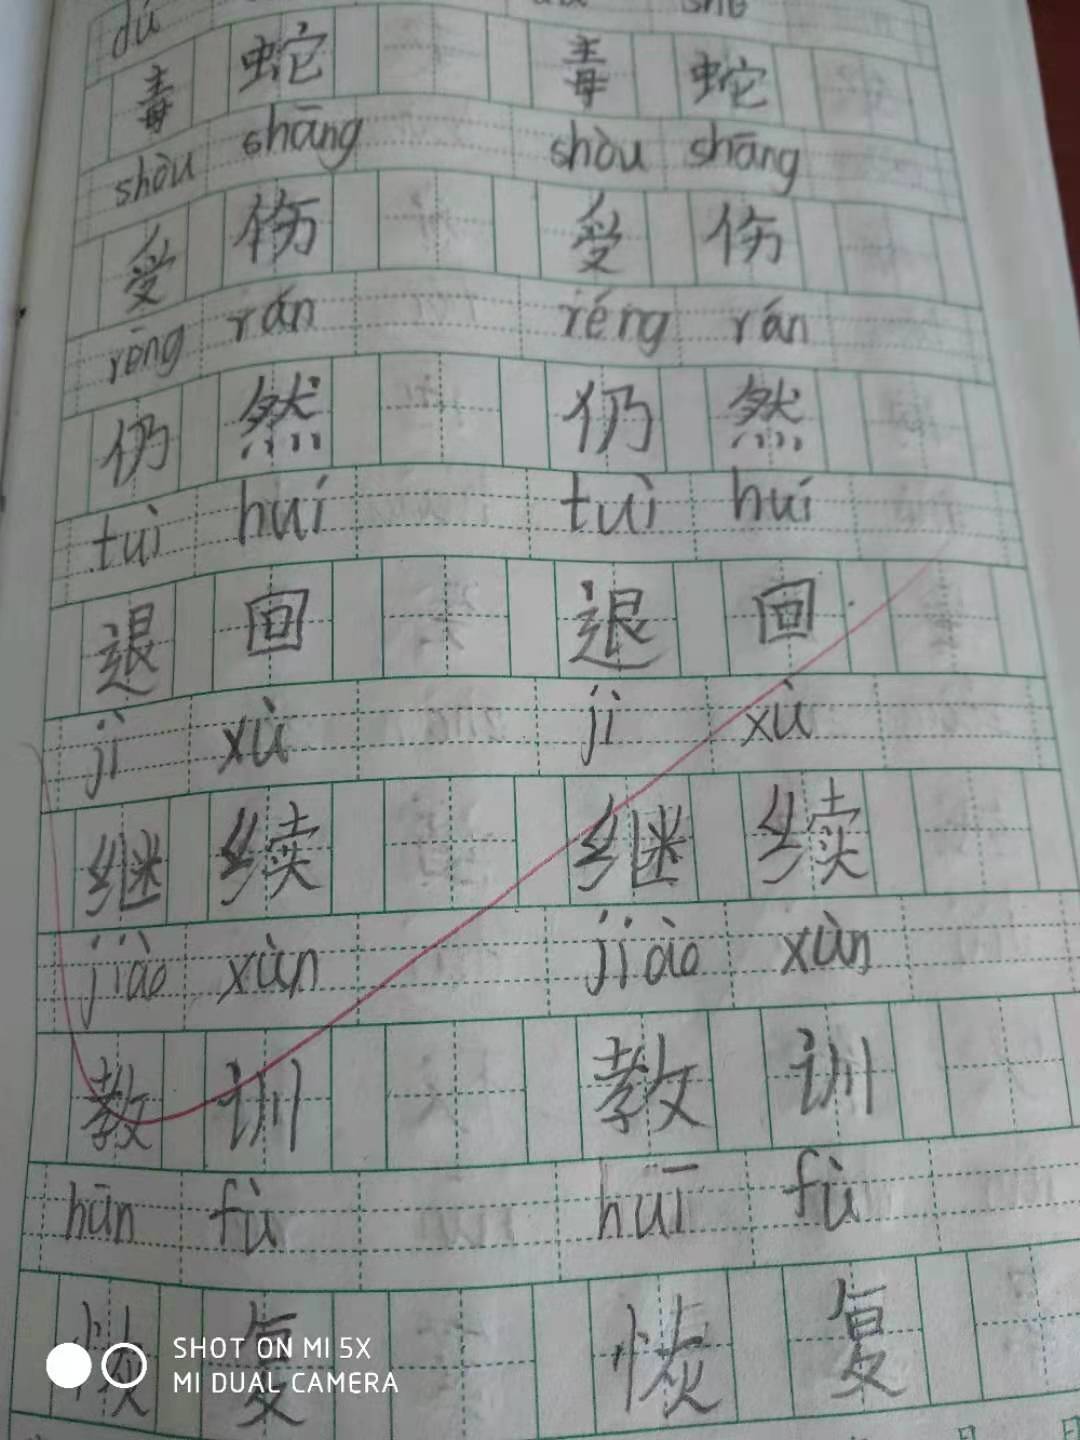 dú
毒 蛇 毒 蛇
shòu shāng shòu shāng
受 伤 受 伤
rēng rán réng rán
仍 然 仍 然
tuì huí tuì huí
退 回 退 回
jì xù jì xù
继 续 继 续
jiào xùn jiào xùn
教 训 教 训
hūn fù huī fù
恢 复 恢 复
SHOT ON MI 5X
MI DUAL CAMERA